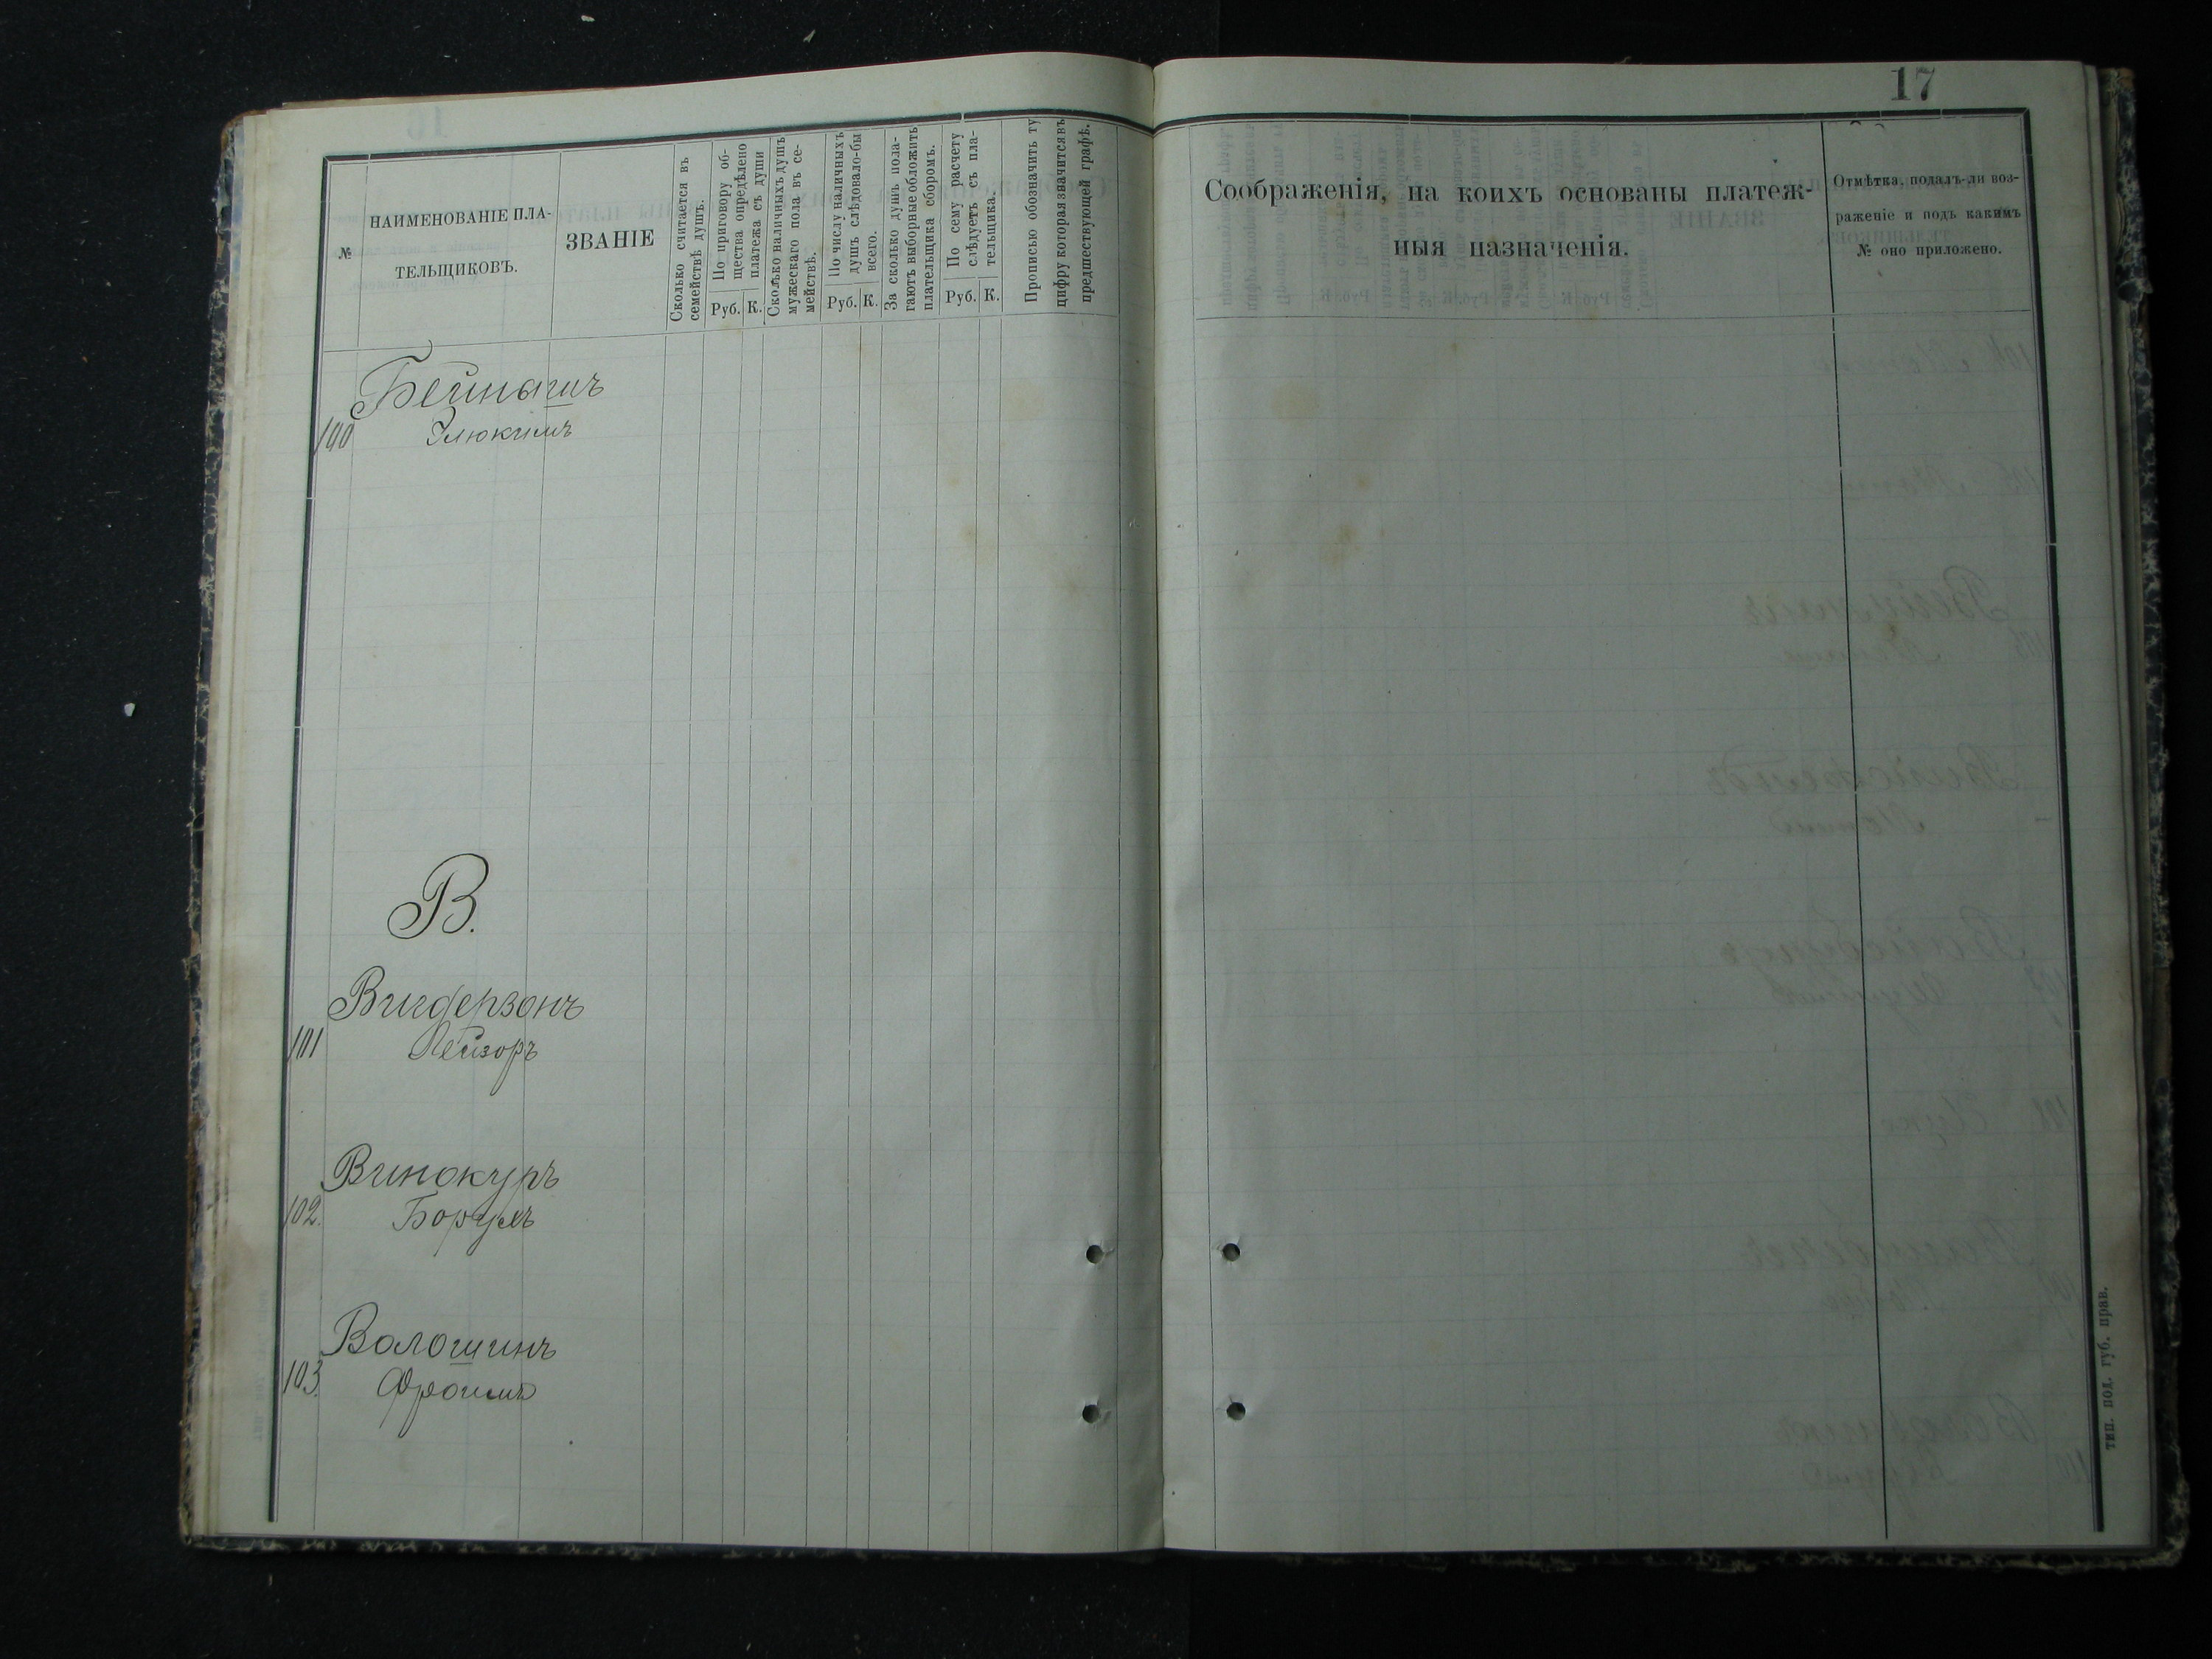 17
№
НАИМЕНОВАНІЕ ПЛА-
ТЕЛЬЩИКОВЪ.
ЗВАНІЕ
Сколько считается въ
семействѣ душъ.
По приговору об-
щества опредѣлено
платежа съ души
Руб. К.
Сколько наличныхъ душъ
мужескаго пола въ се-
мействѣ.
По числу наличныхъ
душъ слѣдовало-бы
всего.
Руб. К.
За сколько душъ пола-
гаютъ выборные обложить
плательщика сборомъ.
По сему расчету
слѣдуетъ съ пла-
тельщика.
Руб. К.
Прописью обозначить ту
цифру которая значится въ
предшествующей графѣ.
Соображенія, на коихъ основаны платеж-
ныя назначенія.
Отмѣтка, подалъ-ли воз-
раженіе и подъ какимъ
№ оно приложено.
Бейнышъ
100 Элюкимъ
В.
Вигдерзонъ
101 Лейзоръ
Винокуръ
102. Борухъ
Волошинъ
103. Фроимъ
тип. под. губ. прав.